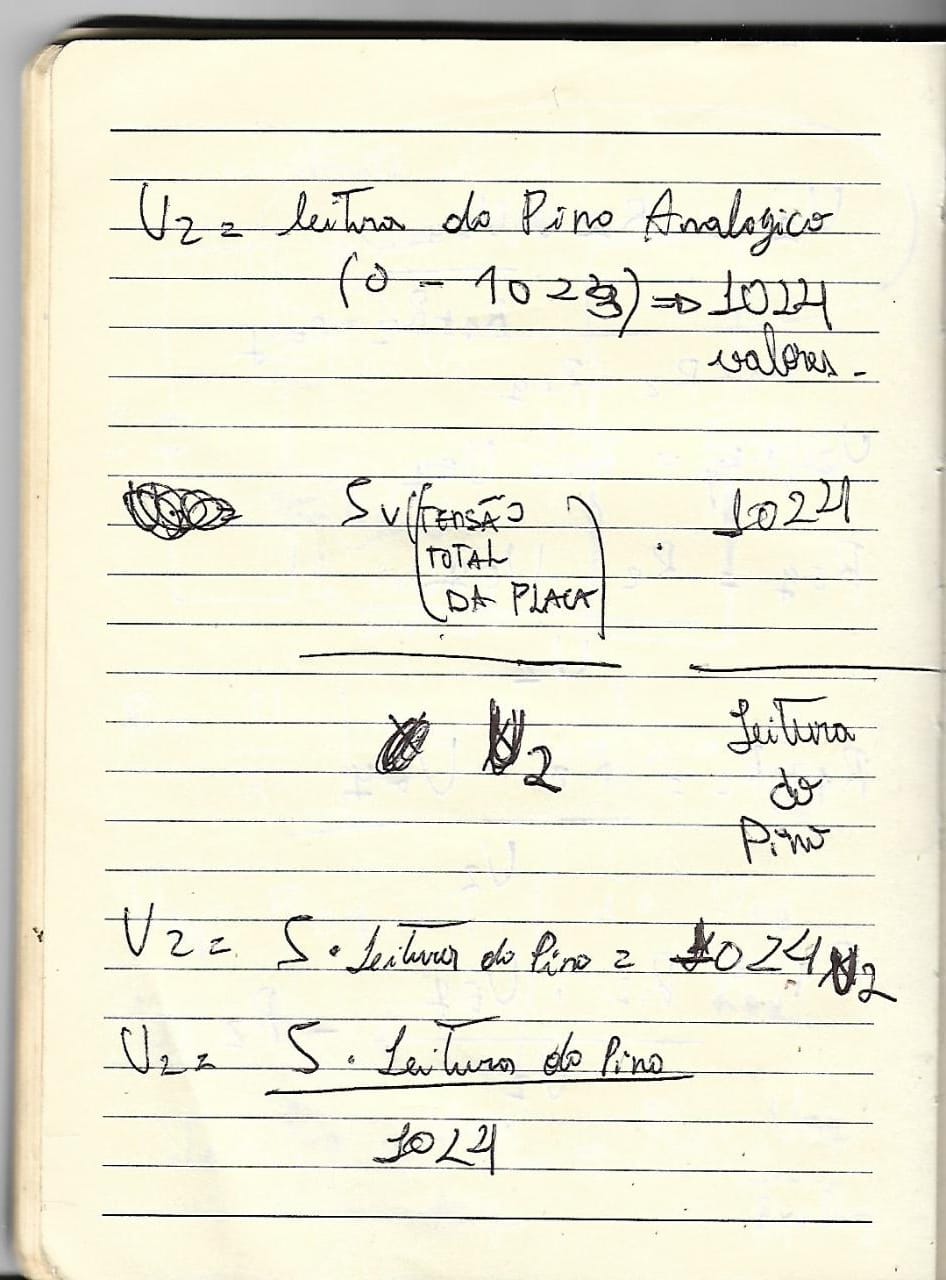 U2 = leitura do Pino Analogico
(0 - 1023) => 1024
valores.
5v (TENSÃO TOTAL DA PLACA) . 1024
U2 Leitura do Pino
U2 = 5 . Leitura do Pino = 1024 U2
U2 = 5 . Leitura do Pino
1024